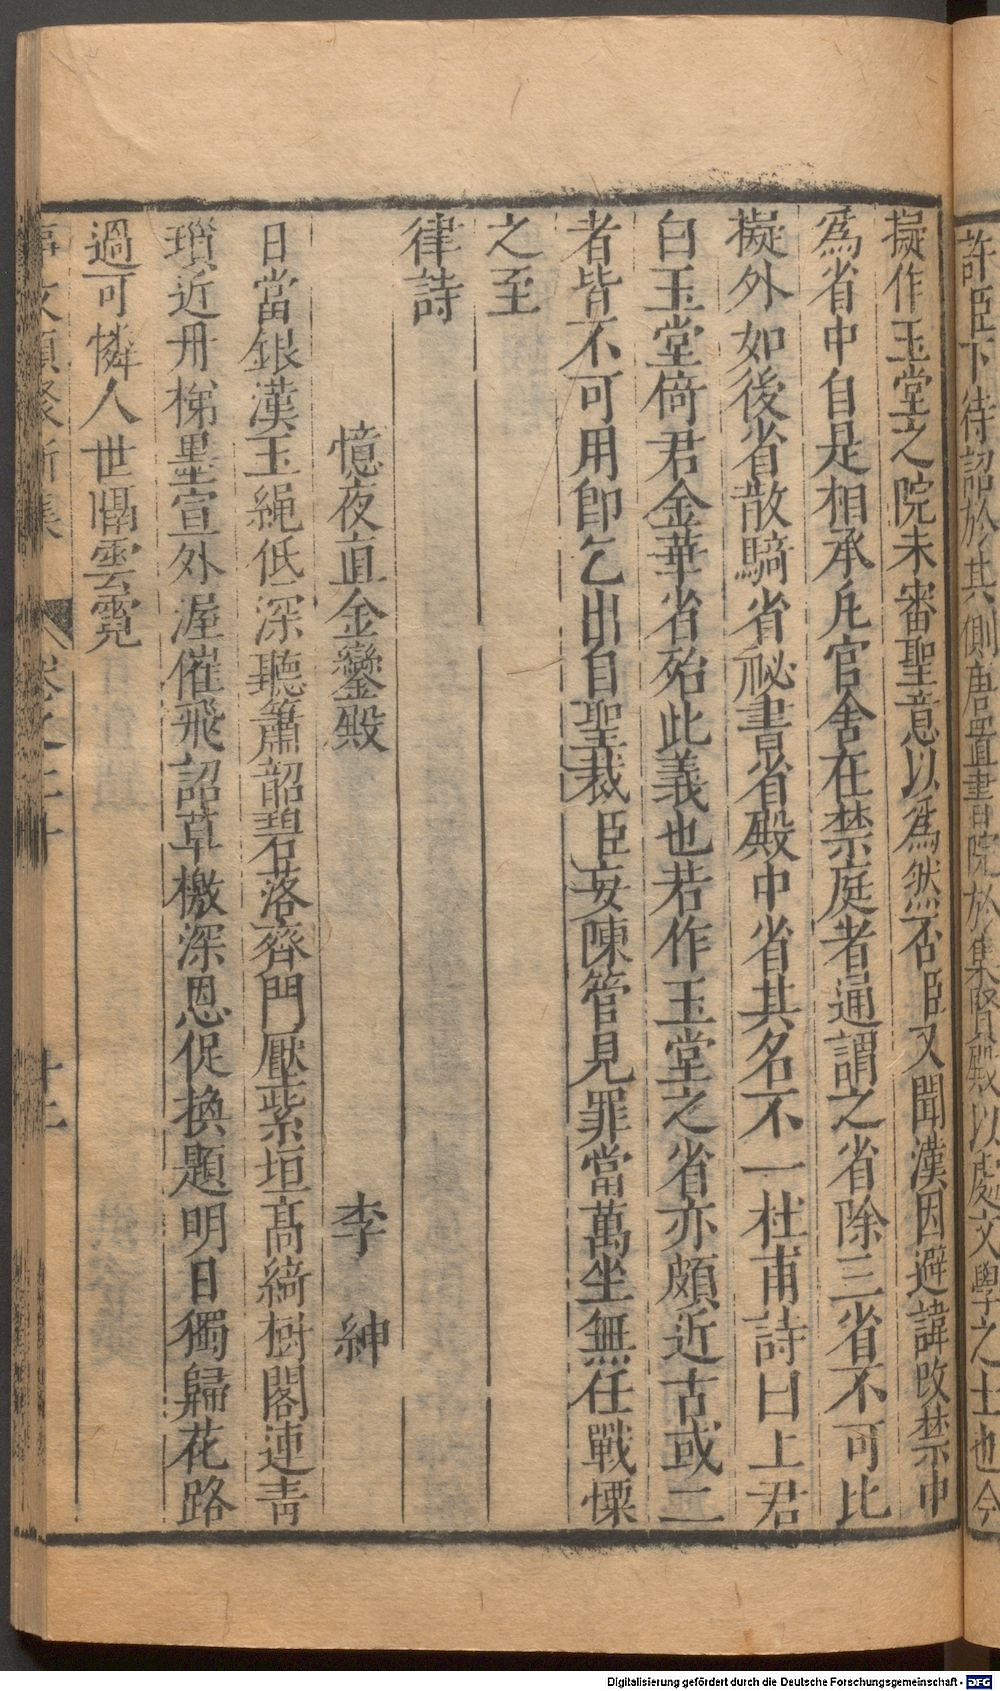 許臣下待詔於其側唐置書院於集賢殿以處文學之士也今
擬作玉堂之院未審聖意以爲然否臣又聞漢因避諱改禁中
爲省中自是相承凡官舍在禁庭者通謂之省除三省不可比
擬外如後省散騎省祕書省殿中省其名不一杜甫詩曰上君
白玉堂倚君金華省殆此義也若作玉堂之省亦頗近古或二
者皆不可用即乞出自聖裁臣妄陳管見罪當萬坐無任戰慄
之至
律詩
憶夜直金鑾殿 李紳
日當銀漢玉繩低深聽簫韶碧落齊門壓紫垣高綺樹閣連青
瑣近丹梯墨宣外渥催飛詔草檄深恩促換題明日獨歸花路
過可憐人世隔雲霓
事文類聚新集 卷之二十 十二
Digitalisierung gefördert durch die Deutsche Forschungsgemeinschaft - DFG